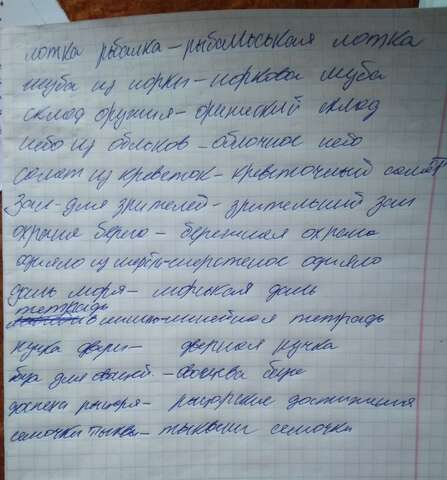 лотка рыбалка – рыбамьськая лотка
шуба из норки – норкова шуба
склад оружия – оружеский склад
небо из облоков – облочное небо
солат из креветок – креветочный солат
Зал – для зрителей – зрительный зал
охрана берего – бережная охрана
одияло из шерсть – шерстеное одияло
даль моря – морькая даль
тетрадь
в линию – линейная тетрадь
ручка двери – дверная ручка
для овощей – овощева
доспехи рыцаря – рыцорские достижения
семочки тыквы – тыквыни семочки